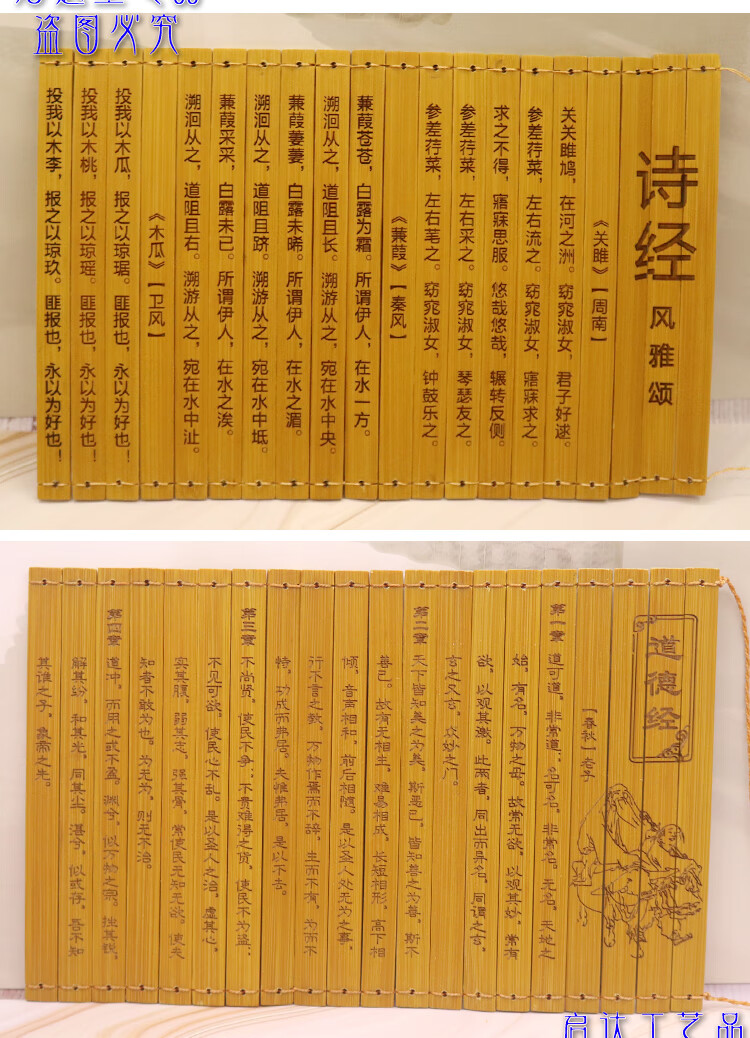 盗图必究
诗经
风雅颂
《关雎》【周南】
关关雎鸠，在河之洲。窈窕淑女，君子好逑。
参差荇菜，左右流之。窈窕淑女，寤寐求之。
求之不得，寤寐思服。悠哉悠哉，辗转反侧。
参差荇菜，左右采之。窈窕淑女，琴瑟友之。
参差荇菜，左右芼之。窈窕淑女，钟鼓乐之。
《蒹葭》【秦风】
蒹葭苍苍，白露为霜。所谓伊人，在水一方。
溯洄从之，道阻且长。溯游从之，宛在水中央。
蒹葭萋萋，白露未晞。所谓伊人，在水之湄。
溯洄从之，道阻且跻。溯游从之，宛在水中坻。
蒹葭采采，白露未已。所谓伊人，在水之涘。
溯洄从之，道阻且右。溯游从之，宛在水中沚。
《木瓜》【卫风】
投我以木瓜，报之以琼琚。匪报也，永以为好也！
投我以木桃，报之以琼瑶。匪报也，永以为好也！
投我以木李，报之以琼玖。匪报也，永以为好也！
道德经
【春秋】老子
第一章 道可道，非常道；名可名，非常名。无名，天地之
始，有名，万物之母。故常无欲，以观其妙，常有
欲，以观其徼。此两者，同出而异名，同谓之玄。
玄之又玄，众妙之门。
第二章 天下皆知美之为美，斯恶已，皆知善之为善，斯不
善已。故有无相生，难易相成，长短相形，高下相
倾，音声相和，前后相随。是以圣人处无为之事，
行不言之教，万物作焉而不辞，生而不有，为而不
恃，功成而弗居。夫唯弗居，是以不去。
第三章 不尚贤，使民不争；不贵难得之货，使民不为盗；
不见可欲，使民心不乱。是以圣人之治，虚其心，
实其腹，弱其志，强其骨，常使民无知无欲。使夫
知者不敢为也。为无为，则无不治。
第四章 道冲，而用之或不盈。渊兮，似万物之宗。挫其锐，
解其纷，和其光，同其尘。湛兮，似或存。吾不知
其谁之子，象帝之先。
启达工艺品